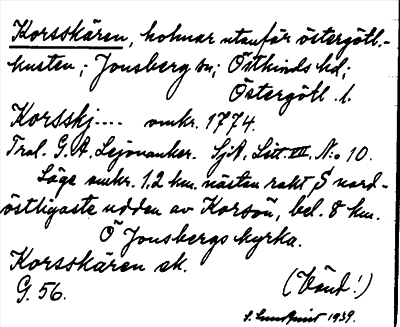 Korsskären, holmar utanför östergötl.-
kusten; Jonsberg sn; Östkinds hd;
Östergötl. l.
Korsskj---- omkr. 1774.
Tral. G. A. Lejonanker. SjA, Litt. VII, N:o 10.
Läge omkr. 1,2 km. nästan rakt S nord-
östligaste udden av Korsön, bel. 8 km.
Ö Jonsbergs kyrka.
Korsskären ek.
G. 56.
(Vänd!)
S. Lundquist 1939.